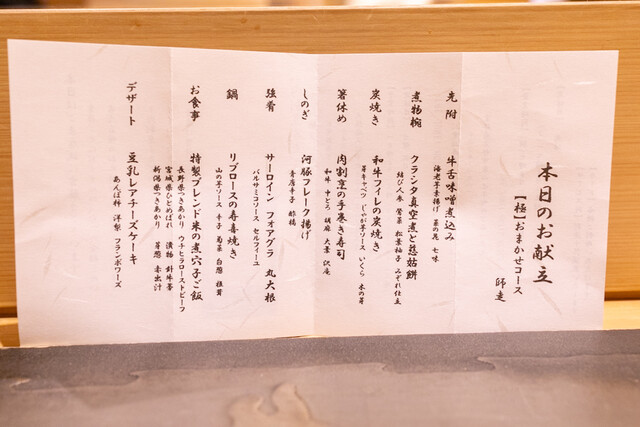 本日のお献立
【極】おまかせコース
師走
先附
牛舌味噌煮込み
海老芋素揚げ 菜の花 七味
煮物椀
クラシタ真空煮と慈姑餅
結び人参 鶯菜 松葉柚子 みぞれ仕立
炭焼き
和牛フィレの炭焼き
芽キャベツ じゃが芋ソース いくら 木の芽
箸休め
肉割烹の手巻き寿司
和牛 中とろ 胡麻 大葉 沢庵
しのぎ
河豚フレーク揚げ
青唐辛子 酢橘
強肴
サーロイン フォアグラ 丸大根
バルサミコソース セルフィーユ
鍋
リブロースの寿喜焼き
山の芋ソース 辛子 菊菜 白葱 椎茸
お食事
特製ブレンド米の煮穴子ご飯
長野県つきあかり ウチヒラローストビーフ
宮城県ひとめぼれ 漬物 針牛蒡
新潟県つきあかり 芽葱 赤出汁
デザート
豆乳レアチーズケーキ
あんぽ柿 洋梨 フランボワーズ